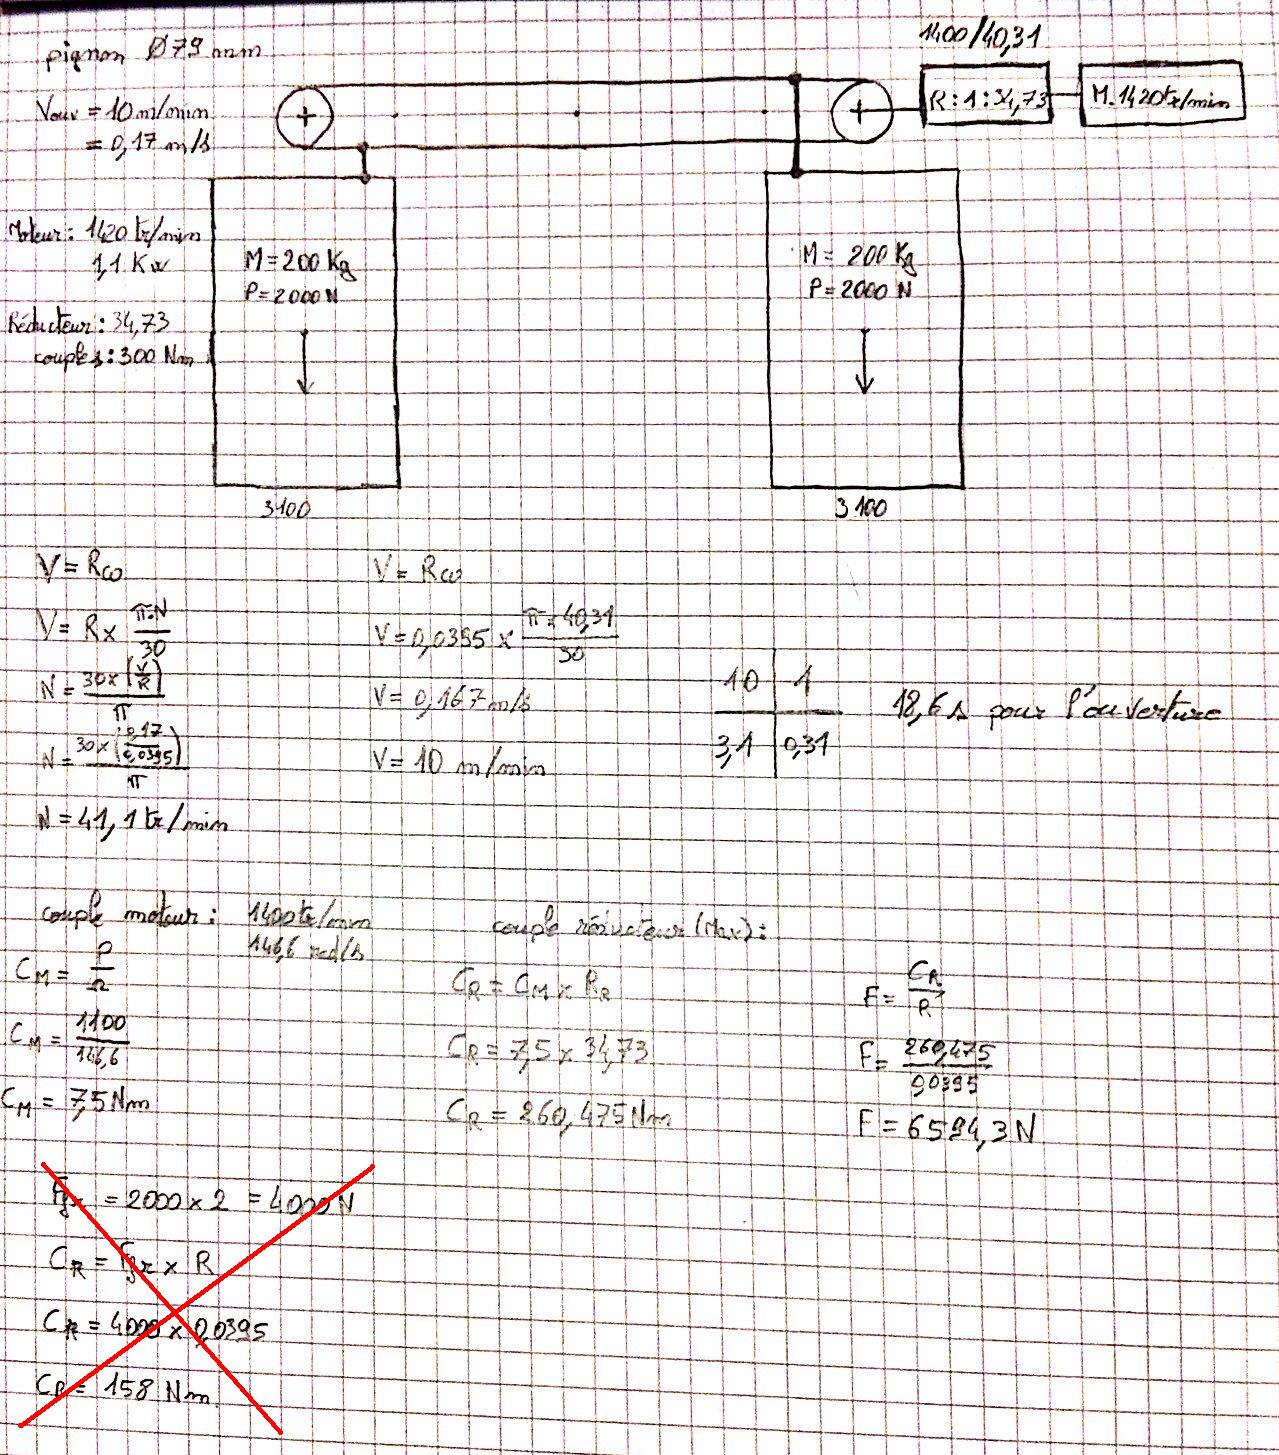 pignon Ø79 mm
1400/40,31
Vouv = 10 m/min
= 0,17 m/s
R : 1 : 34,73
M. 1420tr/min
Moteur : 1420 tr/min
1,1 Kw
Réducteur : 34,73
couple s : 300 Nm
M = 200 Kg
P = 2000 N
M = 200 Kg
P = 2000 N
3100
3100
V = Rω
V = R x π.N/30
N = 30 x (V/R)/π
N = 30 x (0,17/0,0395)/π
N = 41,1 tr/min
V = Rω
V = 0,0395 x π x 40,31/30
V = 0,167 m/s
V = 10 m/min
10 1
3,1 0,31
18,6 s pour l'ouverture
couple moteur : 1400tr/min
146,6 rad/s
CM = P/Ω
CM = 1100/146,6
CM = 7,5 Nm
couple réducteur (Max) :
CR = CM x RR
CR = 7,5 x 34,73
CR = 260,475 Nm
F = CR/R
F = 260,475/0,0395
F = 6594,3 N
= 2000 x 2 = 4000 N
CR = x R
CR = 4000 x 0,0395
CR = 158 Nm